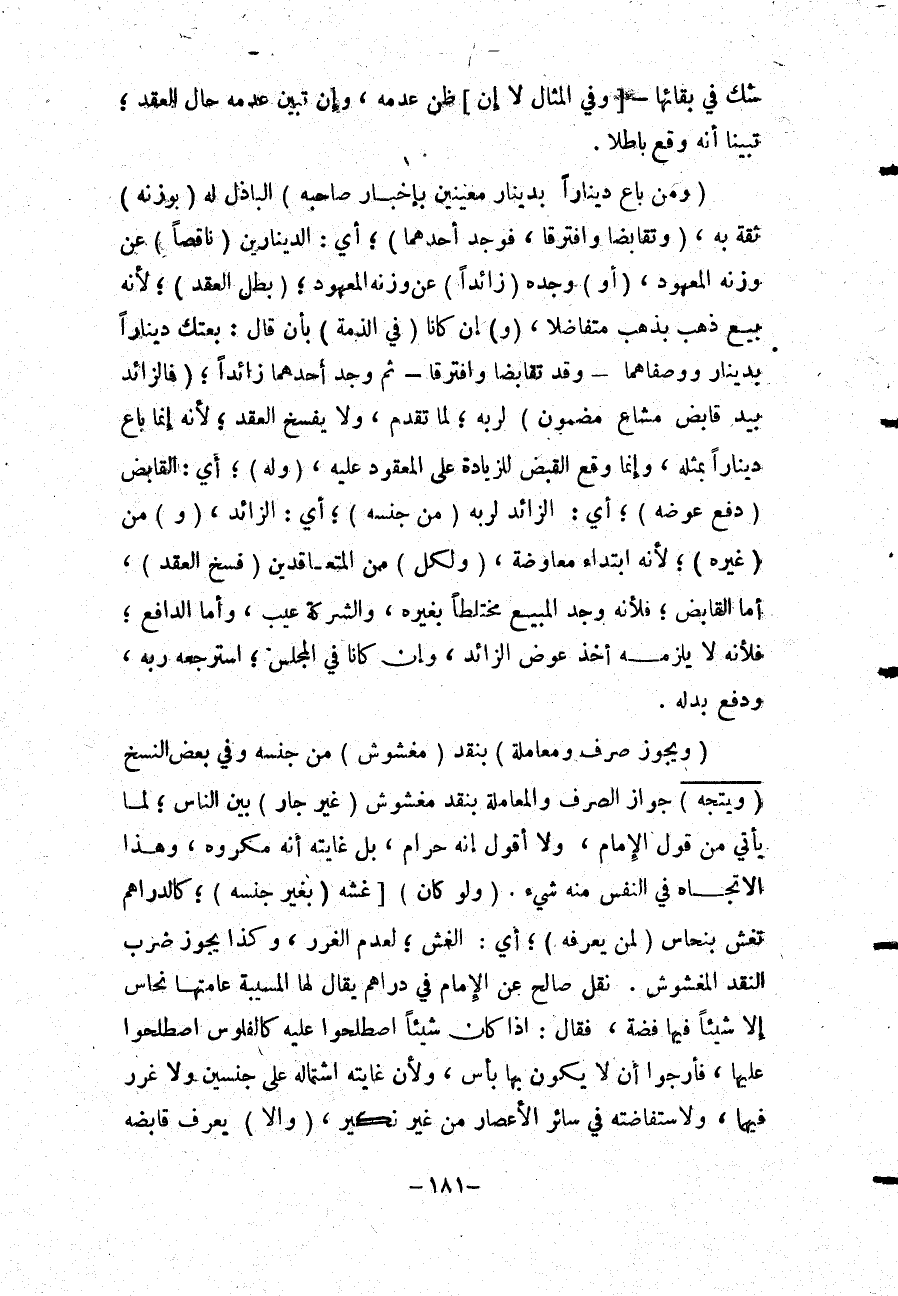 شك في بقائها – [ وفي المثال لا إن ] ظن عدمه ، وإن تبين عدمه حال العقد ؛
تبينا أنه وقع باطلا .
( ومَن باع ديناراً بدينار معينين بإخبـار صاحبه ) الباذل له ( بوزنه )
ثقة به ، ( وتقابضا وافترقا ، فوجد أحدهما ) ؛ أي : الدينارين ( ناقصاً ) عن
وزنه المعهود ، ( أو ) وجده ( زائداً ) عن وزنه المعهود ؛ ( بطل العقد ) ؛ لأنه
بيـع ذهب بذهب متفاضلا ، ( و ) إن كانا ( في الذمة ) بأن قال : بعتك ديناراً
بدينار ووصفاهما – وقد تقابضا وافترقا – ثم وجد أحدهما زائداً ؛ ( فالزائد
بيد قابض مشاع مضمون ) لربه ؛ لما تقدم ، ولا يفسخ العقد ؛ لأنه إنما باع
ديناراً بمثله ، وإنما وقع القبض للزيادة على المعقود عليه ، ( وله ) ؛ أي : القابض
( دفع عوضه ) ؛ أي : الزائد لربه ( من جنسه ) ؛ أي : الزائد ، ( و ) من
( غيره ) ؛ لأنه ابتداء معاوضة ، ( ولكل ) من المتعـاقدين ( فسخ العقد ) ،
أما القابض ؛ فلأنه وجد المبيـع مختلطاً بغيره ، والشركة عيب ، وأما الدافع ؛
فلأنه لا يلزمـــه أخذ عوض الزائد ، وإن كانا في المجلس ؛ استرجعه ربه ،
ودفع بدله .
( ويجوز صرف ومعاملة ) بنقد ( مغشوش ) من جنسه وفي بعض النسخ
( ويتجه ) جواز الصرف والمعاملة بنقد مغشوش ( غير جار ) بين الناس ؛ لمـا
يأتي من قول الإمام ، ولا أقول إنه حرام ، بل غايته أنه مكروه ، وهـذا
الاتجـــاه في النفس منه شيء . ( ولو كان ) [ غشه ( بغير جنسه ) ؛ كالدراهم
تغش بنحاس ( لمن يعرفه ) ؛ أي : الغش ؛ لعدم الغرر ، وكذا يجوز ضرب
النقد المغشوش . نقل صالح عن الإمام في دراهم يقال لها المسيبة عامتهـا نحاس
إلا شيئاً فيها فضة ، فقال : اذا كان شيئاً اصطلحوا عليه كالفلوس اصطلحوا
عليها ، فأرجوا أن لا يكون بها بأس ، ولأن غايته اشتماله على جنسين ولا غرر
فيها ، ولاستفاضته في سائر الأعصار من غير نكير ، ( والا ) يعرف قابضه
–١٨١–